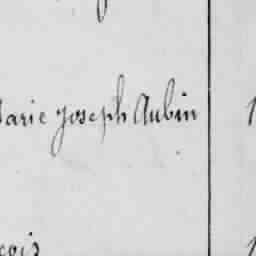 Marie Joseph Aubin 1
çois 1